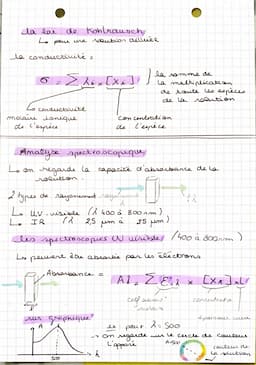 La loi de Kohlrausch
↳ pour une solution diluée
la conductivité :
σ = Σ λi × [Xi]
la somme de
la multiplication
de toute les espèces
de la solution
↳ conductivité
molaire ionique
de l'espèce
concentration
de l'espèce
Analyse spectroscopique
↳ on regarde la capacité d'absorbance de la
solution
2 types de rayonnement
↳ UV-visible (λ 400 à 800nm)
↳ IR (λ 2,5 µm à 25 µm)
les spectroscopies UV visible (400 à 800nm)
↳ peuvent être absorbée par les électrons
Absorbance =
Aλ = Σ Ei,λ × [Xi] × L
coef
concentration
sur graphique
A
500
ex pour λ = 500
→ on regarde sur le cercle de couleurs
l'opposé
A500
couleur de
la solution